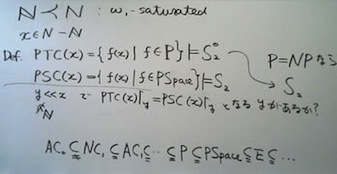 ℕ ≺ N : ω₁-saturated
x ∈ N − ℕ
Def. PTC(x) = { f(x) | f ∈ P } ⊨ S₂⁰
P = NP なら
PSC(x) = { f(x) | f ∈ PSpace } ⊨ S₂
y ≪ x で PTC(x)|y = PSC(x)|y となる y があるか?
N
AC₀ ⊊ NC₁ ⊆ AC₁ ⊆ ‥ ⊆ P ⊆ PSpace ⊆ E ⊆ ⋯